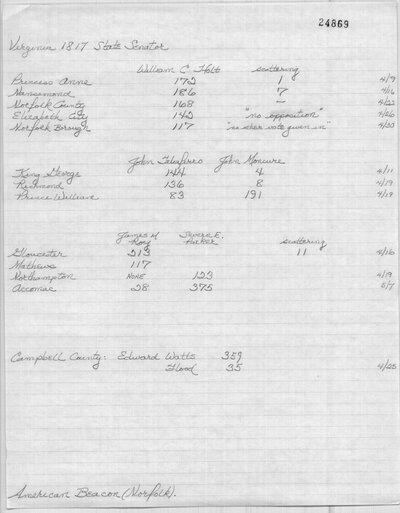 24869
Virginia 1817 State Senator
William C Holt scattering
Princess Anne 172 1 4/9
Nansemond 186 7 4/16
Norfolk County 168 — 4/22
Elizabeth City 142 "no opposition" 4/26
Norfolk Borough 117 "no other vote given in" 4/30
John Taliaferro John Moncure
King George 144 4 4/11
Richmond 136 8 4/19
Prince William 83 191 4/19
James M Severn E.
Roy Parker scattering
Gloucester 213 11 4/16
Mathews 117
Northampton NONE 123 4/19
Accomac 28 375 5/7
Campbell County: Edward Watts 359
Flood 35 4/25
American Beacon (Norfolk).